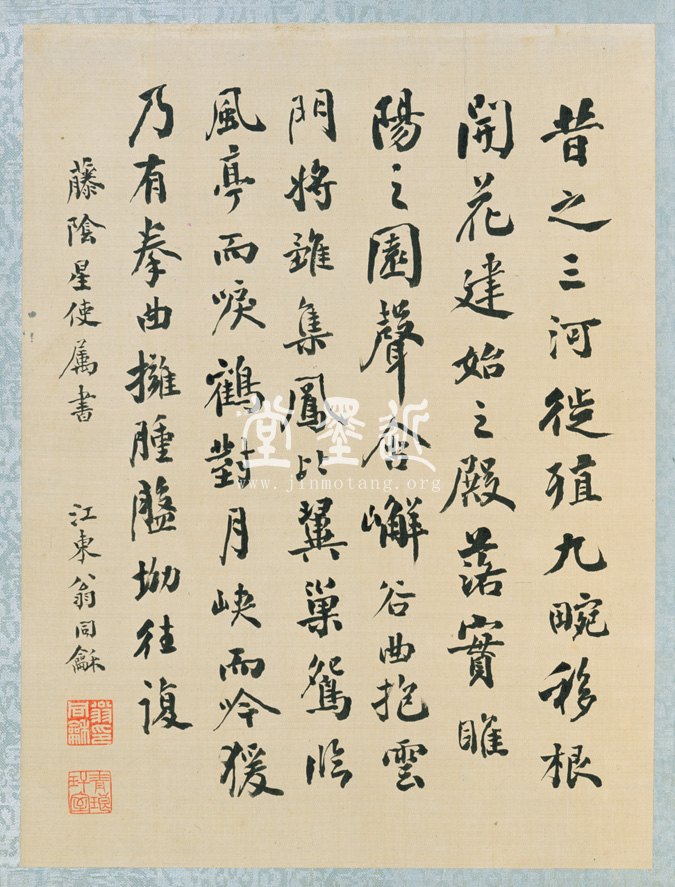 昔之三河徙殖九畹移根
開花建始之殿落實睢
陽之園聲含嶰谷曲抱雲
門將雖集鳳比翼巢鴛臨
風亭而唳鶴對月峽而吟猨
乃有拳曲擁腫盤坳往復
藤陰星使属書
江東翁同龢
翁同龢印
青琅玕室
近墨堂
www.jinmotang.org